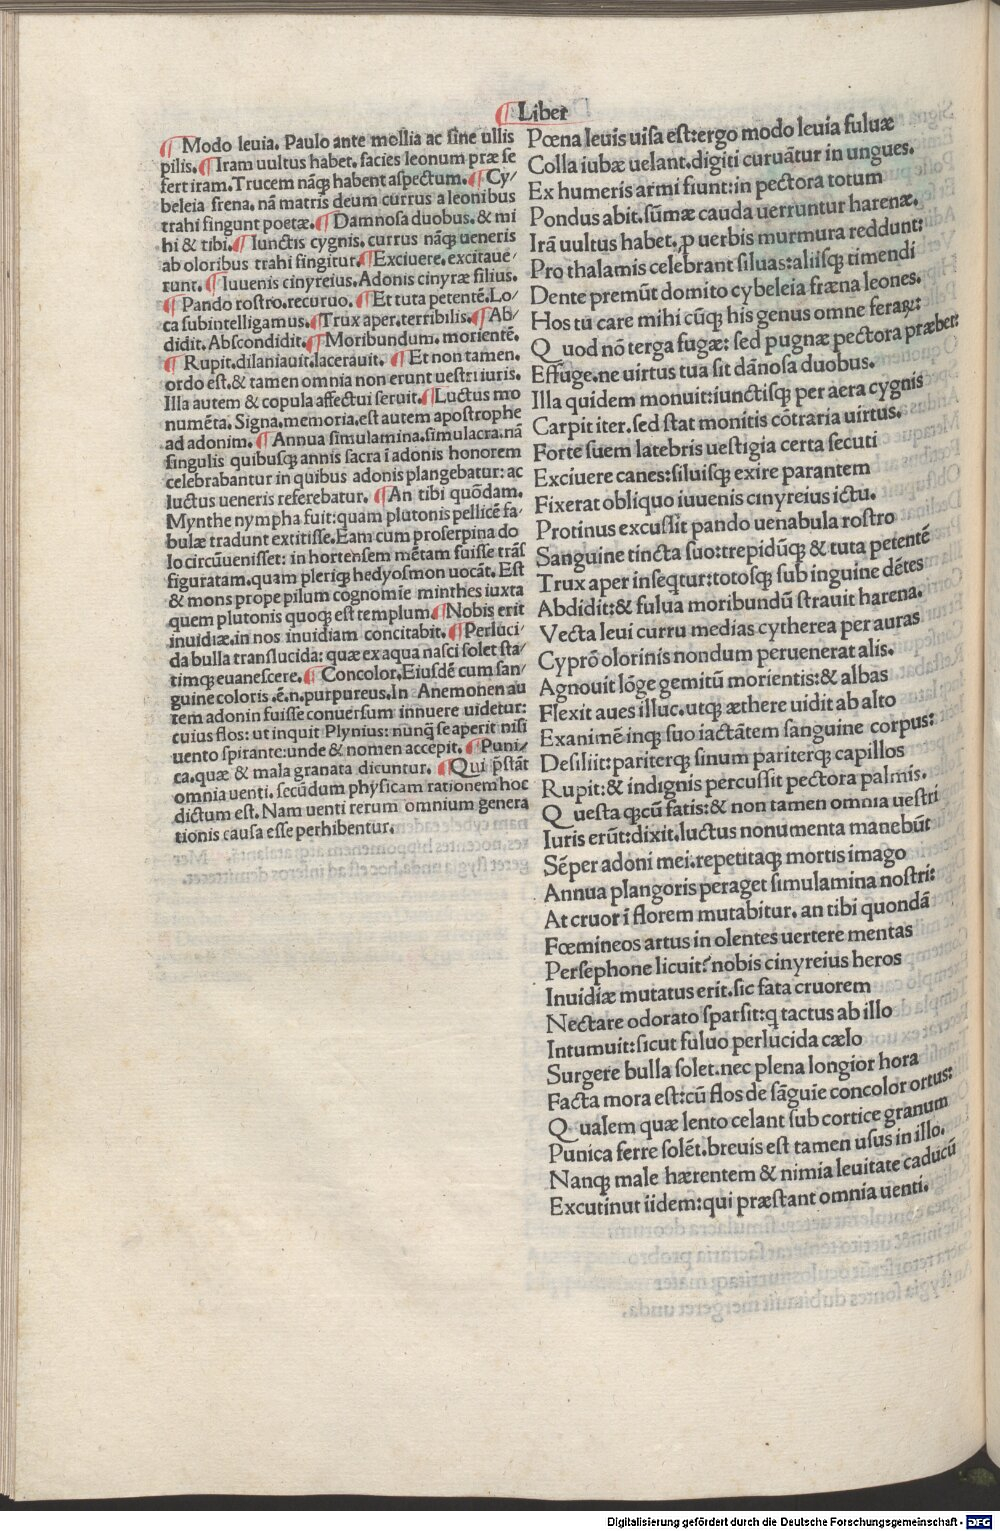 ¶ Liber
¶ Modo leuia. Paulo ante mollia ac sine ullis
pilis. ¶ Iram uultus habet. facies leonum præ se
fert iram. Trucem nãq; habent aspectum. ¶ Cy/
beleia frena. nã matris deum currus a leonibus
trahi fingunt poetæ. ¶ Damnosa duobus. & mi
hi & tibi. ¶ Iunctis cygnis. currus nãq; ueneris
ab oloribus trahi fingitur. ¶ Exciuere. excitaue/
runt. ¶ Iuuenis cinyreius. Adonis cinyræ filius.
¶ Pando rostro. recuruo. ¶ Et tuta petentẽ. Lo/
ca subintelligamus. ¶ Trux aper. terribilis. ¶ Ab/
didit. Abscondidit. ¶ Moribundum. morientẽ.
¶ Rupit. dilaniauit. lacerauit. ¶ Et non tamen.
ordo est. & tamen omnia non erunt uestri iuris.
Illa autem & copula affectui seruit. ¶ Luctus mo
numẽta. Signa. memoria. est autem apostrophe
ad adonim. ¶ Annua simulamina. simulacra. nã
singulis quibusq; annis sacra ĩ adonis honorem
celebrabantur in quibus adonis plangebatur: ac
luctus ueneris referebatur. ¶ An tibi quõdam.
Mynthe nympha fuit: quam plutonis pellicẽ fa/
bulæ tradunt extitisse. Eam cum proserpina do
lo circũuenisset: in hortensem mẽtam fuisse trãs
figuratam. quam pleriq; hedyosmon uocãt. Est
& mons prope pilum cognomie minthes iuxta
quem plutonis quoq; est templum. ¶ Nobis erit
inuidiæ. in nos inuidiam concitabit. ¶ Perluci/
da bulla translucida: quæ ex aqua nasci solet sta/
timq; euanescere. ¶ Concolor. Eiusdẽ cum san/
guine coloris .ẽ.n. purpureus. In Anemonen au
tem adonin fuisse conuersum innuere uidetur:
cuius flos: ut inquit Plynius: nunq̃ se aperit nisi
uento spirante: unde & nomen accepit. ¶ Puni/
ca. quæ & mala granata dicuntur. ¶ Qui p̃stãt
omnia uenti. secũdum physicam rationem hoc
dictum est. Nam uenti rerum omnium genera
tionis causa esse perhibentur.
Pœna leuis uisa est: ergo modo leuia fuluæ
Colla iubæ uelant. digiti curuãtur in ungues.
Ex humeris armi fiunt: in pectora totum
Pondus abit. sũmæ cauda uerruntur harenæ.
Irã uultus habet. p uerbis murmura reddunt:
Pro thalamis celebrant siluas: aliisq; timendi
Dente premũt domito cybeleia fræna leones.
Hos tu care mihi cũq; his genus omne feraꝝ:
Quod nõ terga fugæ: sed pugnæ pectora præbet:
Effuge. ne uirtus tua sit dãnosa duobus.
Illa quidem monuit: iunctisq; per aera cygnis
Carpit iter. sed stat monitis cõtraria uirtus.
Forte suem latebris uestigia certa secuti
Exciuere canes: siluisq; exire parantem
Fixerat obliquo iuuenis cinyreius ictu.
Protinus excussit pando uenabula rostro
Sanguine tincta suo: trepidũq; & tuta petentẽ
Trux aper inseqtur: totosq; sub inguine dẽtes
Abdidit: & fulua moribundũ strauit harena.
Vecta leui curru medias cytherea per auras
Cyprõ olorinis nondum peruenerat alis.
Agnouit lõge gemitũ morientis: & albas
Flexit aues illuc. utq; æthere uidit ab alto
Exanimẽ inq; suo iactãtem sanguine corpus:
Desiliit: pariterq; sinum pariterq; capillos
Rupit: & indignis percussit pectora palmis.
Questa q;cũ fatis: & non tamen omnia uestri
Iuris erũt: dixit. luctus nonumenta manebũt
Sẽper adoni mei: repetitaq; mortis imago
Annua plangoris peraget simulamina nostri:
At cruor ĩ florem mutabitur. an tibi quondã
Fœmineos artus in olentes uertere mentas
Persephone licuit? nobis cinyreius heros
Inuidiæ mutatus erit. sic fata cruorem
Nectare odorato sparsit: q tactus ab illo
Intumuit: sicut fuluo perlucida cælo
Surgere bulla solet. nec plena longior hora
Facta mora est: cũ flos de sãguie concolor ortus:
Qualem quæ lento celant sub cortice granum
Punica ferre solẽt. breuis est tamen usus in illo.
Nanq; male hærentem & nimia leuitate caducũ
Excutinut iidem: qui præstant omnia uenti.
Digitalisierung gefördert durch die Deutsche Forschungsgemeinschaft - DFG